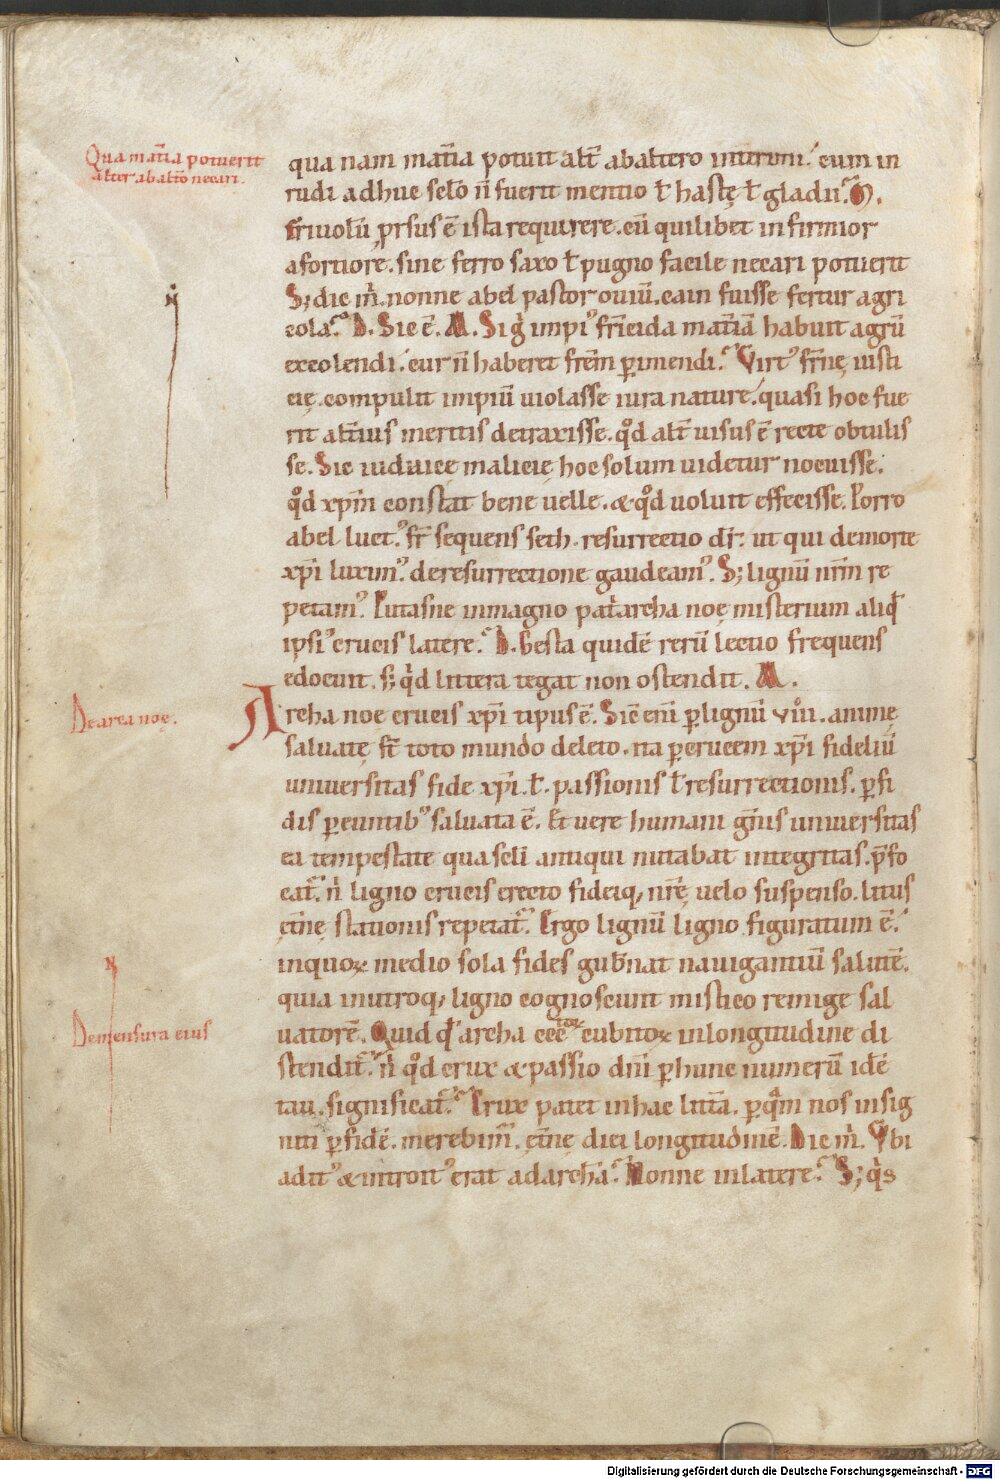 Qua mat̄ia potuerit
alter ab alt̄o necari.
qua nam mat̄ia potuit alt̄ ab altero interimi.' cum in
rudi adhuc sclō n̄ fuerit mentio ł hastę ł gladii. M.
Friuolū prsus ē ista requirere. cū quilibet infirmior
a fortiore. sine ferro saxo ł pugno facile necari potuerit
S; dic m̄. nonne abel pastor ouiū. cain fuisse fertur agri
cola. D. Sic ē. M. Sig̊ impi᾽ fr̄icida mat̄iā habuit agrū
excolendi.' cur n̄ haberet frēm ꝑimendi. Virt᾽ fr̄nę iusti
cię. compulit impiū uiolasse iura naturę. quasi hoc fue
rit alt̄ius meritis detraxisse. qd̊ alt̄ uisus ē recte obtulis
se. Sic iudaicę malicię hoc solum uidetur nocuisse.'
qd̊ xp̄m constat bene uelle. & qd̊ uoluit effecisse. Porro
abel luct᾽. fr̄ sequens seth. resurrectio dr̄. ut qui de morte
xp̄i luxim᾽. de resurrectione gaudeam᾽. S; lignū nr̄m re
petam᾽. Putasne in magno pat̄archa noę misterium aliqd̄
ipsi᾽ crucis latere. D. Gesta quidē rerū lectio frequens
edocuit. s; qd̄ littera tegat non ostendit. M.
De arca noę.
Archa noe crucis xp̄i tipus ē. Sic eni ꝑ lignū viii. animę
saluatę st̄ toto mundo deleto. ita ꝑ crucem xp̄i fideliū
uniuersitas fide xp̄i. ł. passionis ł resurrectionis. ꝑfi
dis ꝑeuntib᾽ saluata ē. Et uere humani gn̄is uniuersitas
ea tempestate qua scli antiqui nutabat integritas. p̄fo
cat̄. n̄ ligno crucis erecto fideiq; nr̄ę uelo suspenso. litus
et̄nę stationis repetat̄. Ergo lignū ligno figuratum ē.'
in quoꝝ medio sola fides gub̄nat nauigantiū salutē.
quia in utroq; ligno cognoscunt mistico remige sal
uatorē. Quid qd̄ archa ccctoꝝ cubitoꝝ in longitudine di
De mensura eius
stendit̄. n̄ qd̊ crux & passio dn̄i ꝑ hunc numerū idē
tau. significat̄. Crux patet in hac litt̄a. ꝑ qm̄ nos insig
niti ꝑ fidē. merebim̄. et̄nę diei longitudinē. Dic m̄. Vbi
adit᾽ & introit᾽ erat ad archā. Nonne in latere. S; qs̄